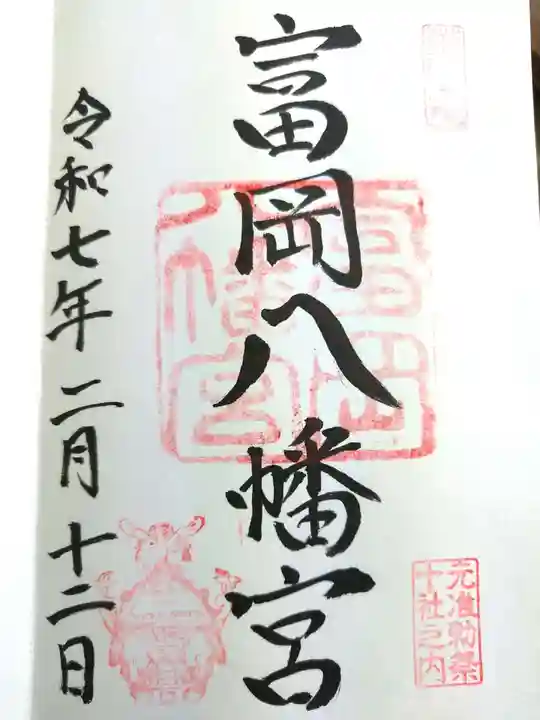 富岡八幡宮
元准勅祭
十社之内
富岡
八幡宮
令和七年二月十二日